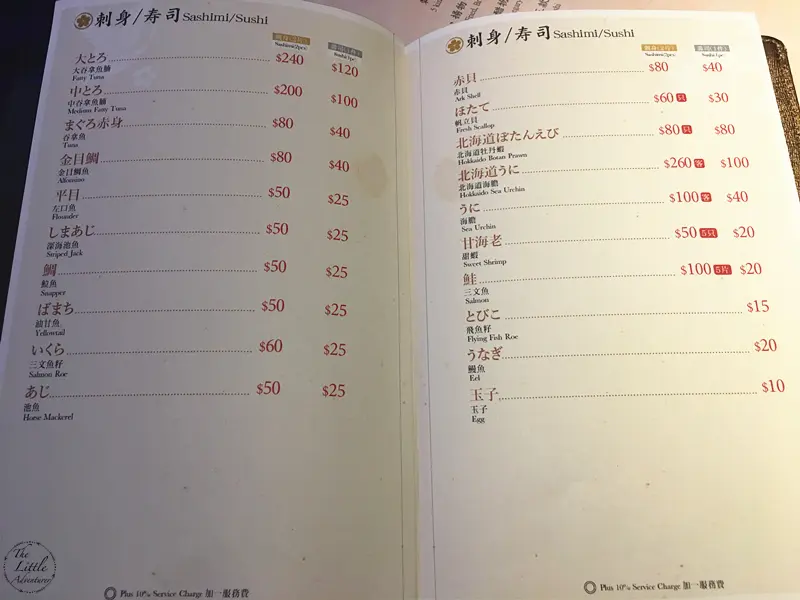 刺身/寿司Sashimi/Sushi
刺身(2片)
Sashimi(2pcs)
壽司(1件)
Sushi(1pc)
大とろ $240 $120
大吞拿魚腩
Fatty Tuna
中とろ $200 $100
中吞拿魚腩
Medium Fatty Tuna
まぐろ赤身 $80 $40
吞拿魚
Tuna
金目鯛 $80 $40
金目鯛魚
Alfonsino
平目 $50 $25
左口魚
Flounder
しまあじ $50 $25
深海池魚
Striped Jack
鯛 $50 $25
鯛魚
Snapper
はまち $50 $25
油甘魚
Yellowtail
いくら $60 $25
三文魚籽
Salmon Roe
あじ $50 $25
池魚
Horse Mackerel
Plus 10% Service Charge 加一服務費
The
Little
Adventurer
刺身/寿司Sashimi/Sushi
刺身(2片)
Sashimi(2pcs)
壽司(1件)
Sushi(1pc)
赤貝 $80 $40
赤貝
Ark Shell
ほたて $60 只 $30
帆立貝
Fresh Scallop
北海道ぼたんえび $80 只 $80
北海道牡丹蝦
Hokkaido Botan Prawn
北海道うに $260 客 $100
北海道海膽
Hokkaido Sea Urchin
うに $100 客 $40
海膽
Sea Urchin
甘海老 $50 5只 $20
甜蝦
Sweet Shrimp
鮭 $100 5片 $20
三文魚
Salmon
とびこ $15
飛魚籽
Flying Fish Roe
うなぎ $20
鰻魚
Eel
玉子 $10
玉子
Egg
Plus 10% Service Charge 加一服務費